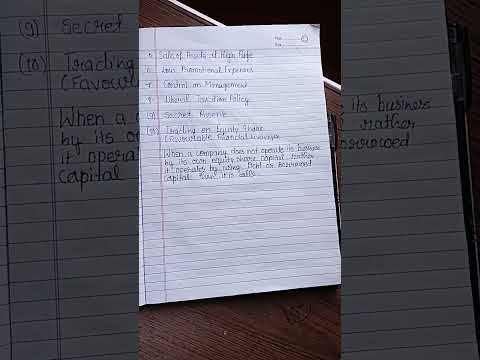 5 Sale of Assets at High Price
6 Less Promotional Expenses
7 Control on Management
8 Liberal Taxation Policy
(9) Secret Reserve
(10) Trading on Equity Share
(Favourable Financial Leverage)
When a company does not operate its business
by its own equity share capital rather
it operates by using Debt or borrowed
capital
(9) Secret
(10) Trading
(Favoura
When a
by its o
it opera
capital
its business
rather
borrowed